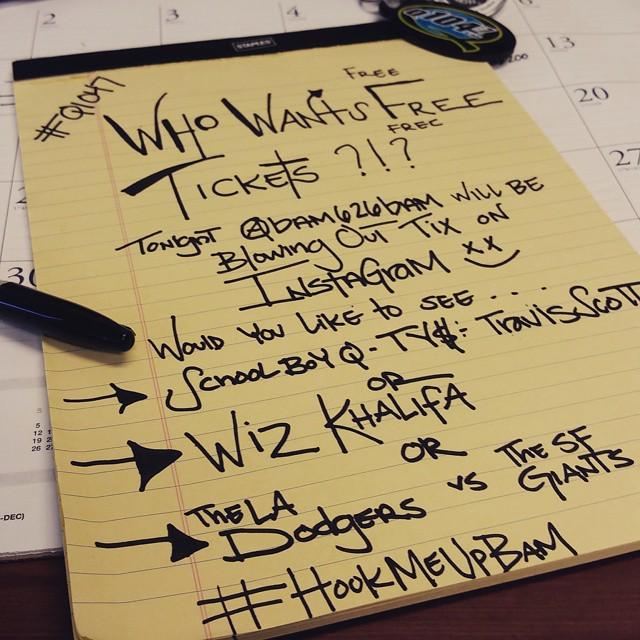 2 3 4 6
STAPLES
13
20
27
30
#Q1047
FREE
WHO WANTS FREE
FREE
TICKETS ?!?
TONIGHT @bam626bam WILL BE
Blowing Out Tix ON
INSTAGRAM
WOULD YOU LIKE TO SEE....
SCHOOLBOY Q - TY$ - TRAVIS SCOTT
OR
WIZ KHALIFA
OR
The LA Dodgers vs The SF GIANTS
#HOOKMEUPBAM
5
12
19
26
-DEC)